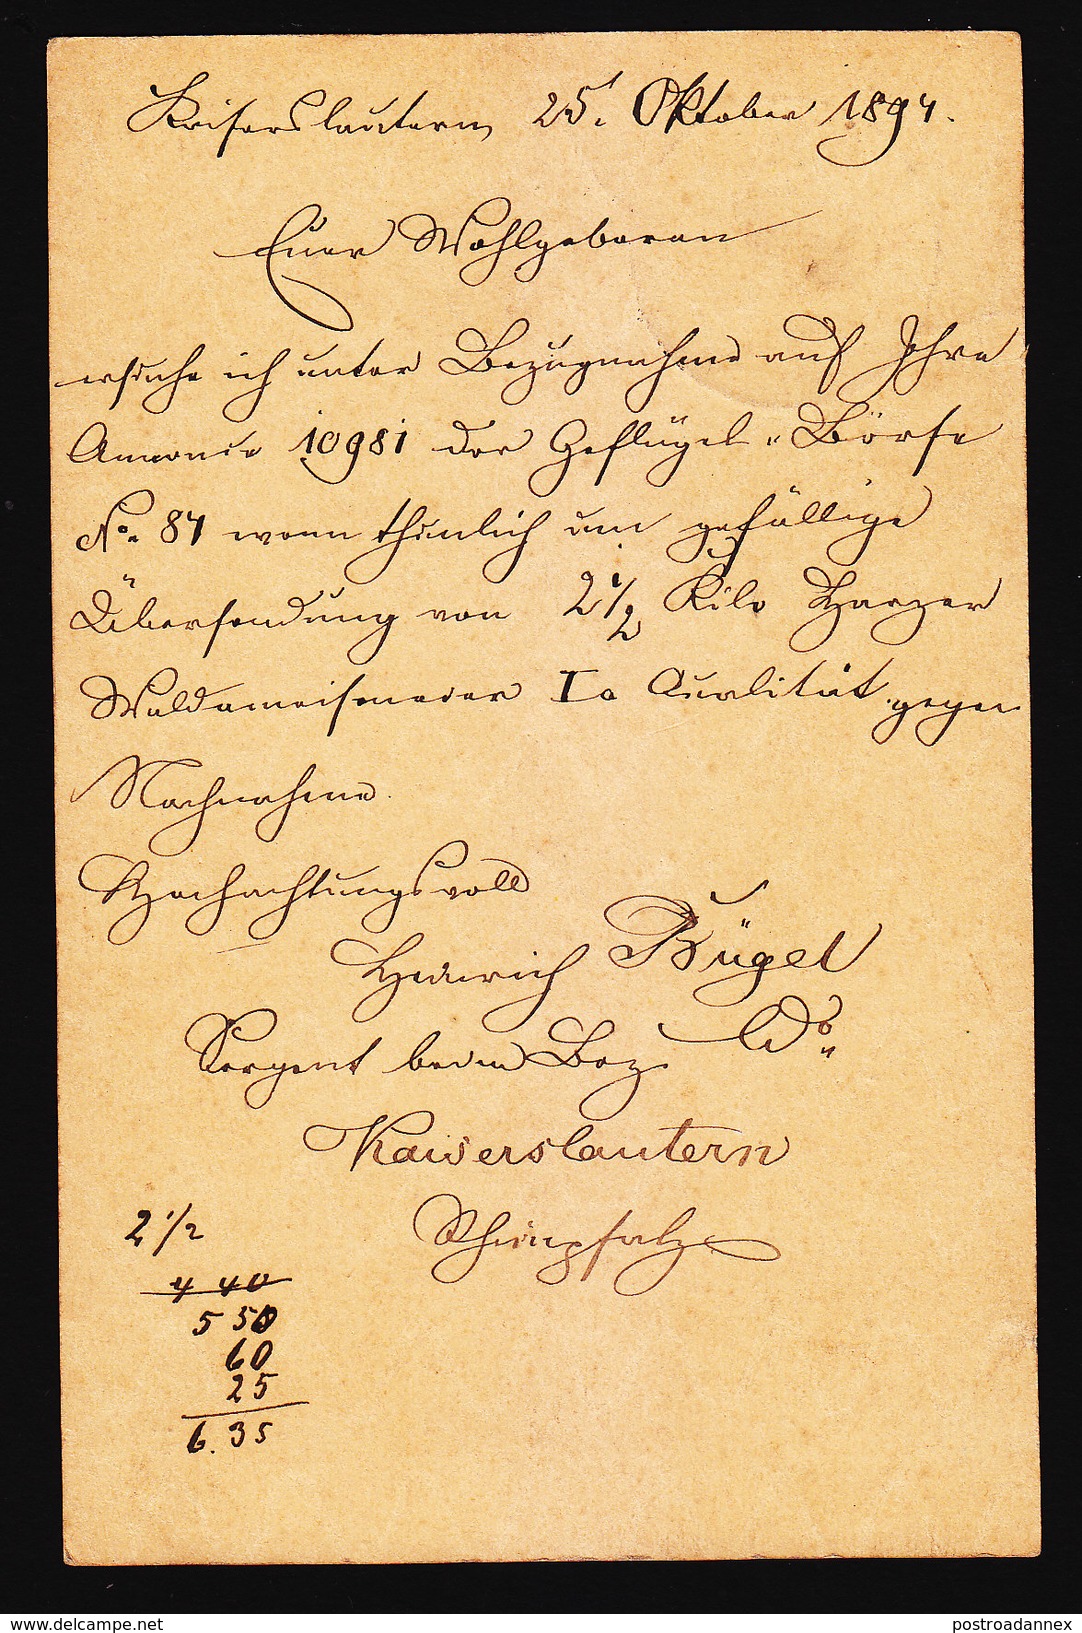 Kaiserslautern, 25. Oktober 1894.
Euer Wohlgeboren
ersuche ich unter Bezugnahme auf Ihre
Annonce 10981 der Geflügel-Börse
No. 84 wenn thunlich um gefällige
Übersendung von 2 1/2 Kilo Harzer
Waldameiseneier Ia Qualität gegen
Nachnahme.
Hochachtungsvoll
Heinrich Bügel
Sergent beim Bez. Cdo.
Kaiserslautern
Rheinpfalz
2 1/2
4 40
5 50
60
25
6.35
www.delcampe.net
postroadannex